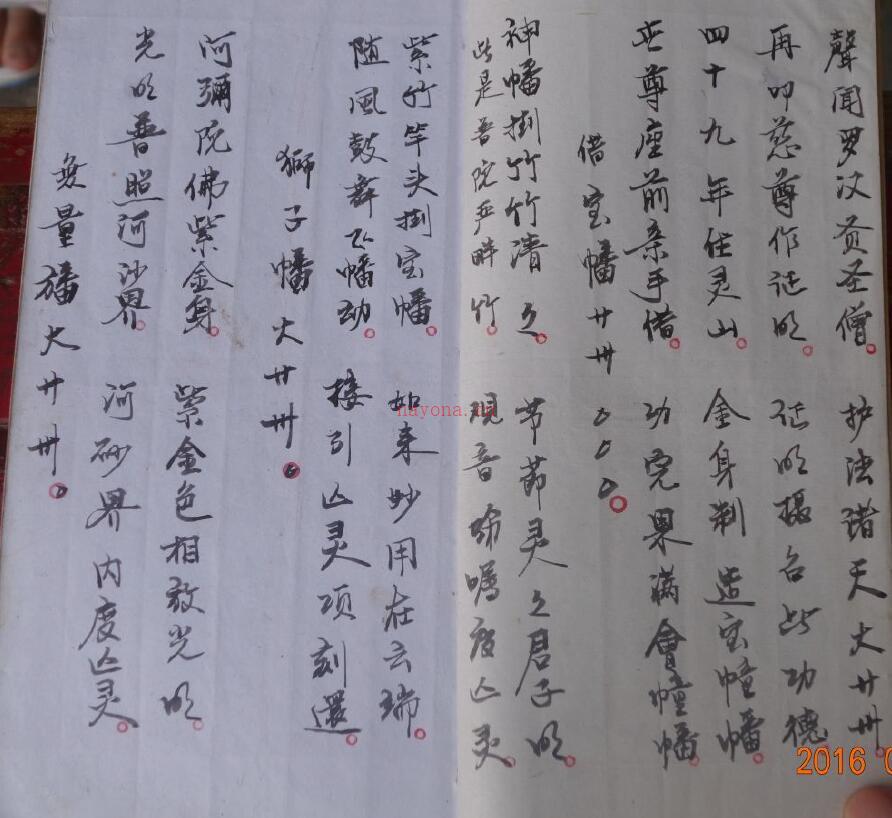 聲闻罗汉贡圣僧。 护法诸天大廾卌。
再叩慈尊作证明。 证明提名此功德
四十九年住灵山。 金身制造宝幢幡。
世尊座前亲手借。 功完果满會幢幡。
借宝幡廾卌。。。
神幡掛竹竹清之。 节节灵之君子明。
此是普院严畔竹。 观音吩嘱度亡灵。
紫竹竿头掛宝幡。 如来妙用在云端。
随風鼓舞飞幡动。 接引亡灵项刻還。
獅子幡大廾卌。
阿彌陀佛紫金身。 紫金色相放光明。
光明普照河沙界。 河砂界内度亡灵。
無量旛大廾卌。
nayona.cn
2016 0